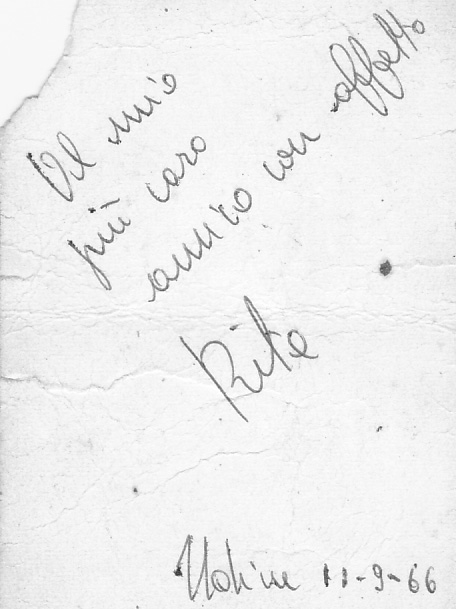 Al mio
più caro
amico con affetto
Rita
11-9-66